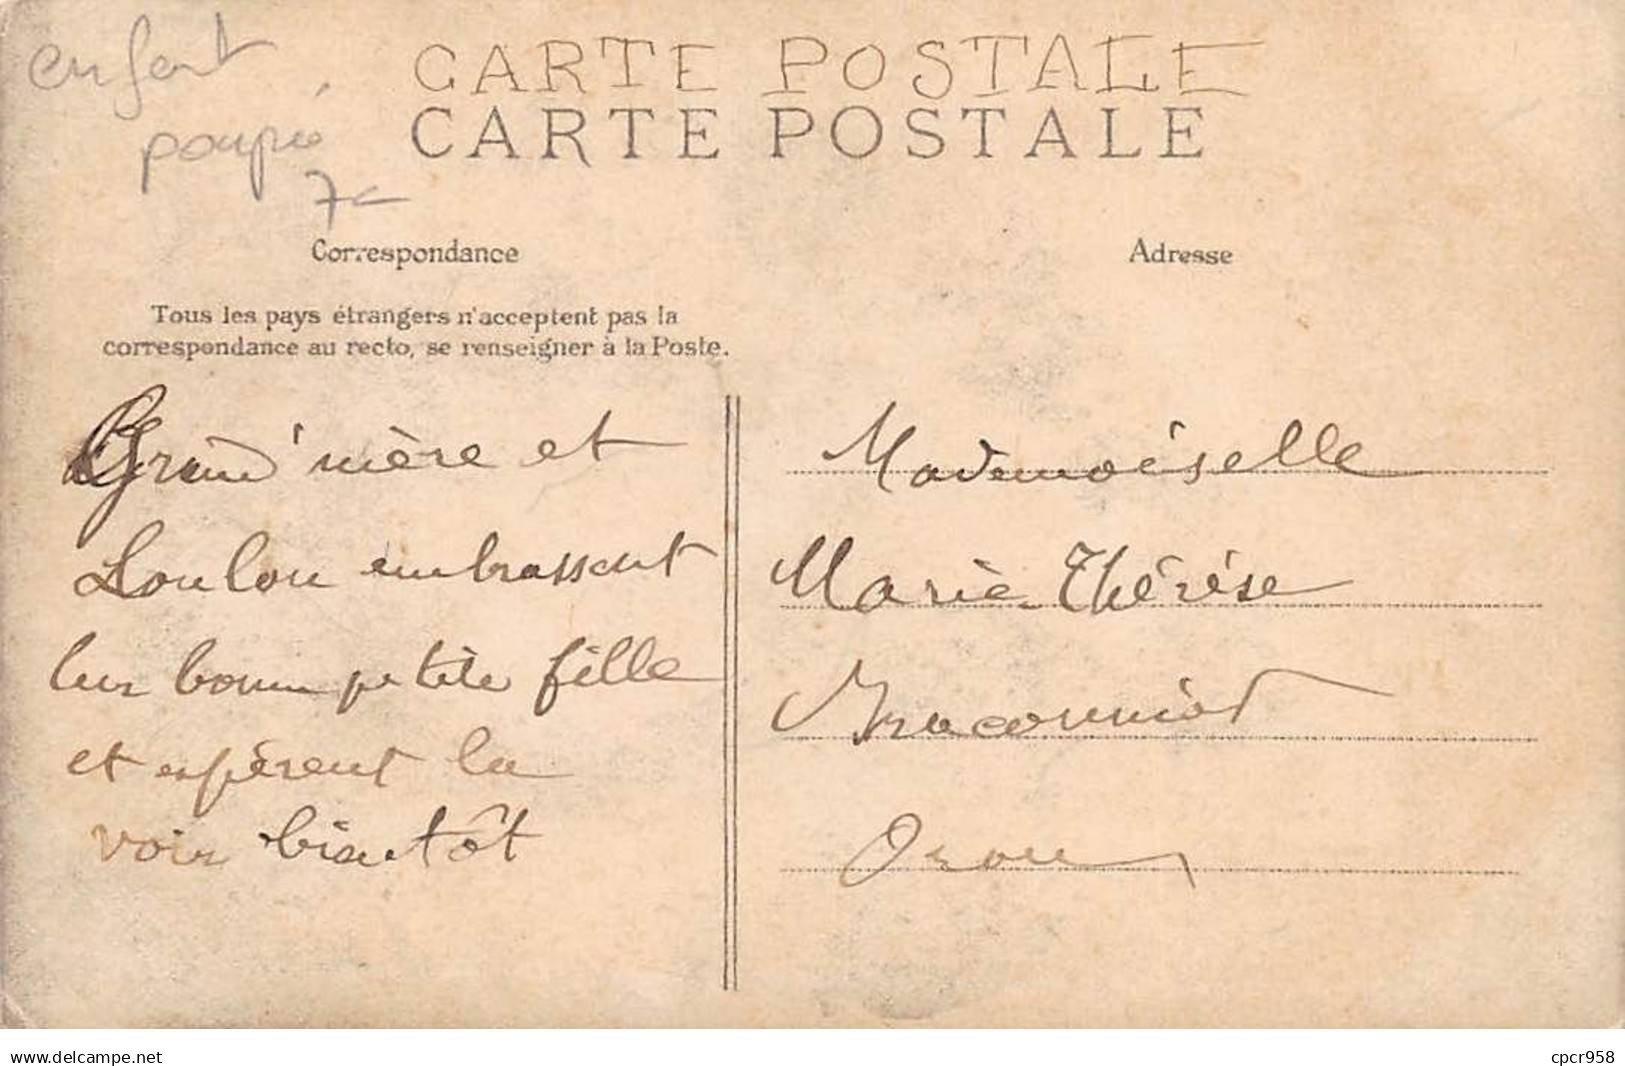 enfant
poupée
7-
CARTE POSTALE
CARTE POSTALE
Correspondance
Adresse
Tous les pays étrangers n'acceptent pas la
correspondance au recto, se renseigner à la Poste.
Grand'mère et
Loulou embrassent
leur bonne petite fille
et espèrent la
voir bientôt
Mademoiselle
Marie-Thérèse
Braconniot
delcampe.net
cpcr958